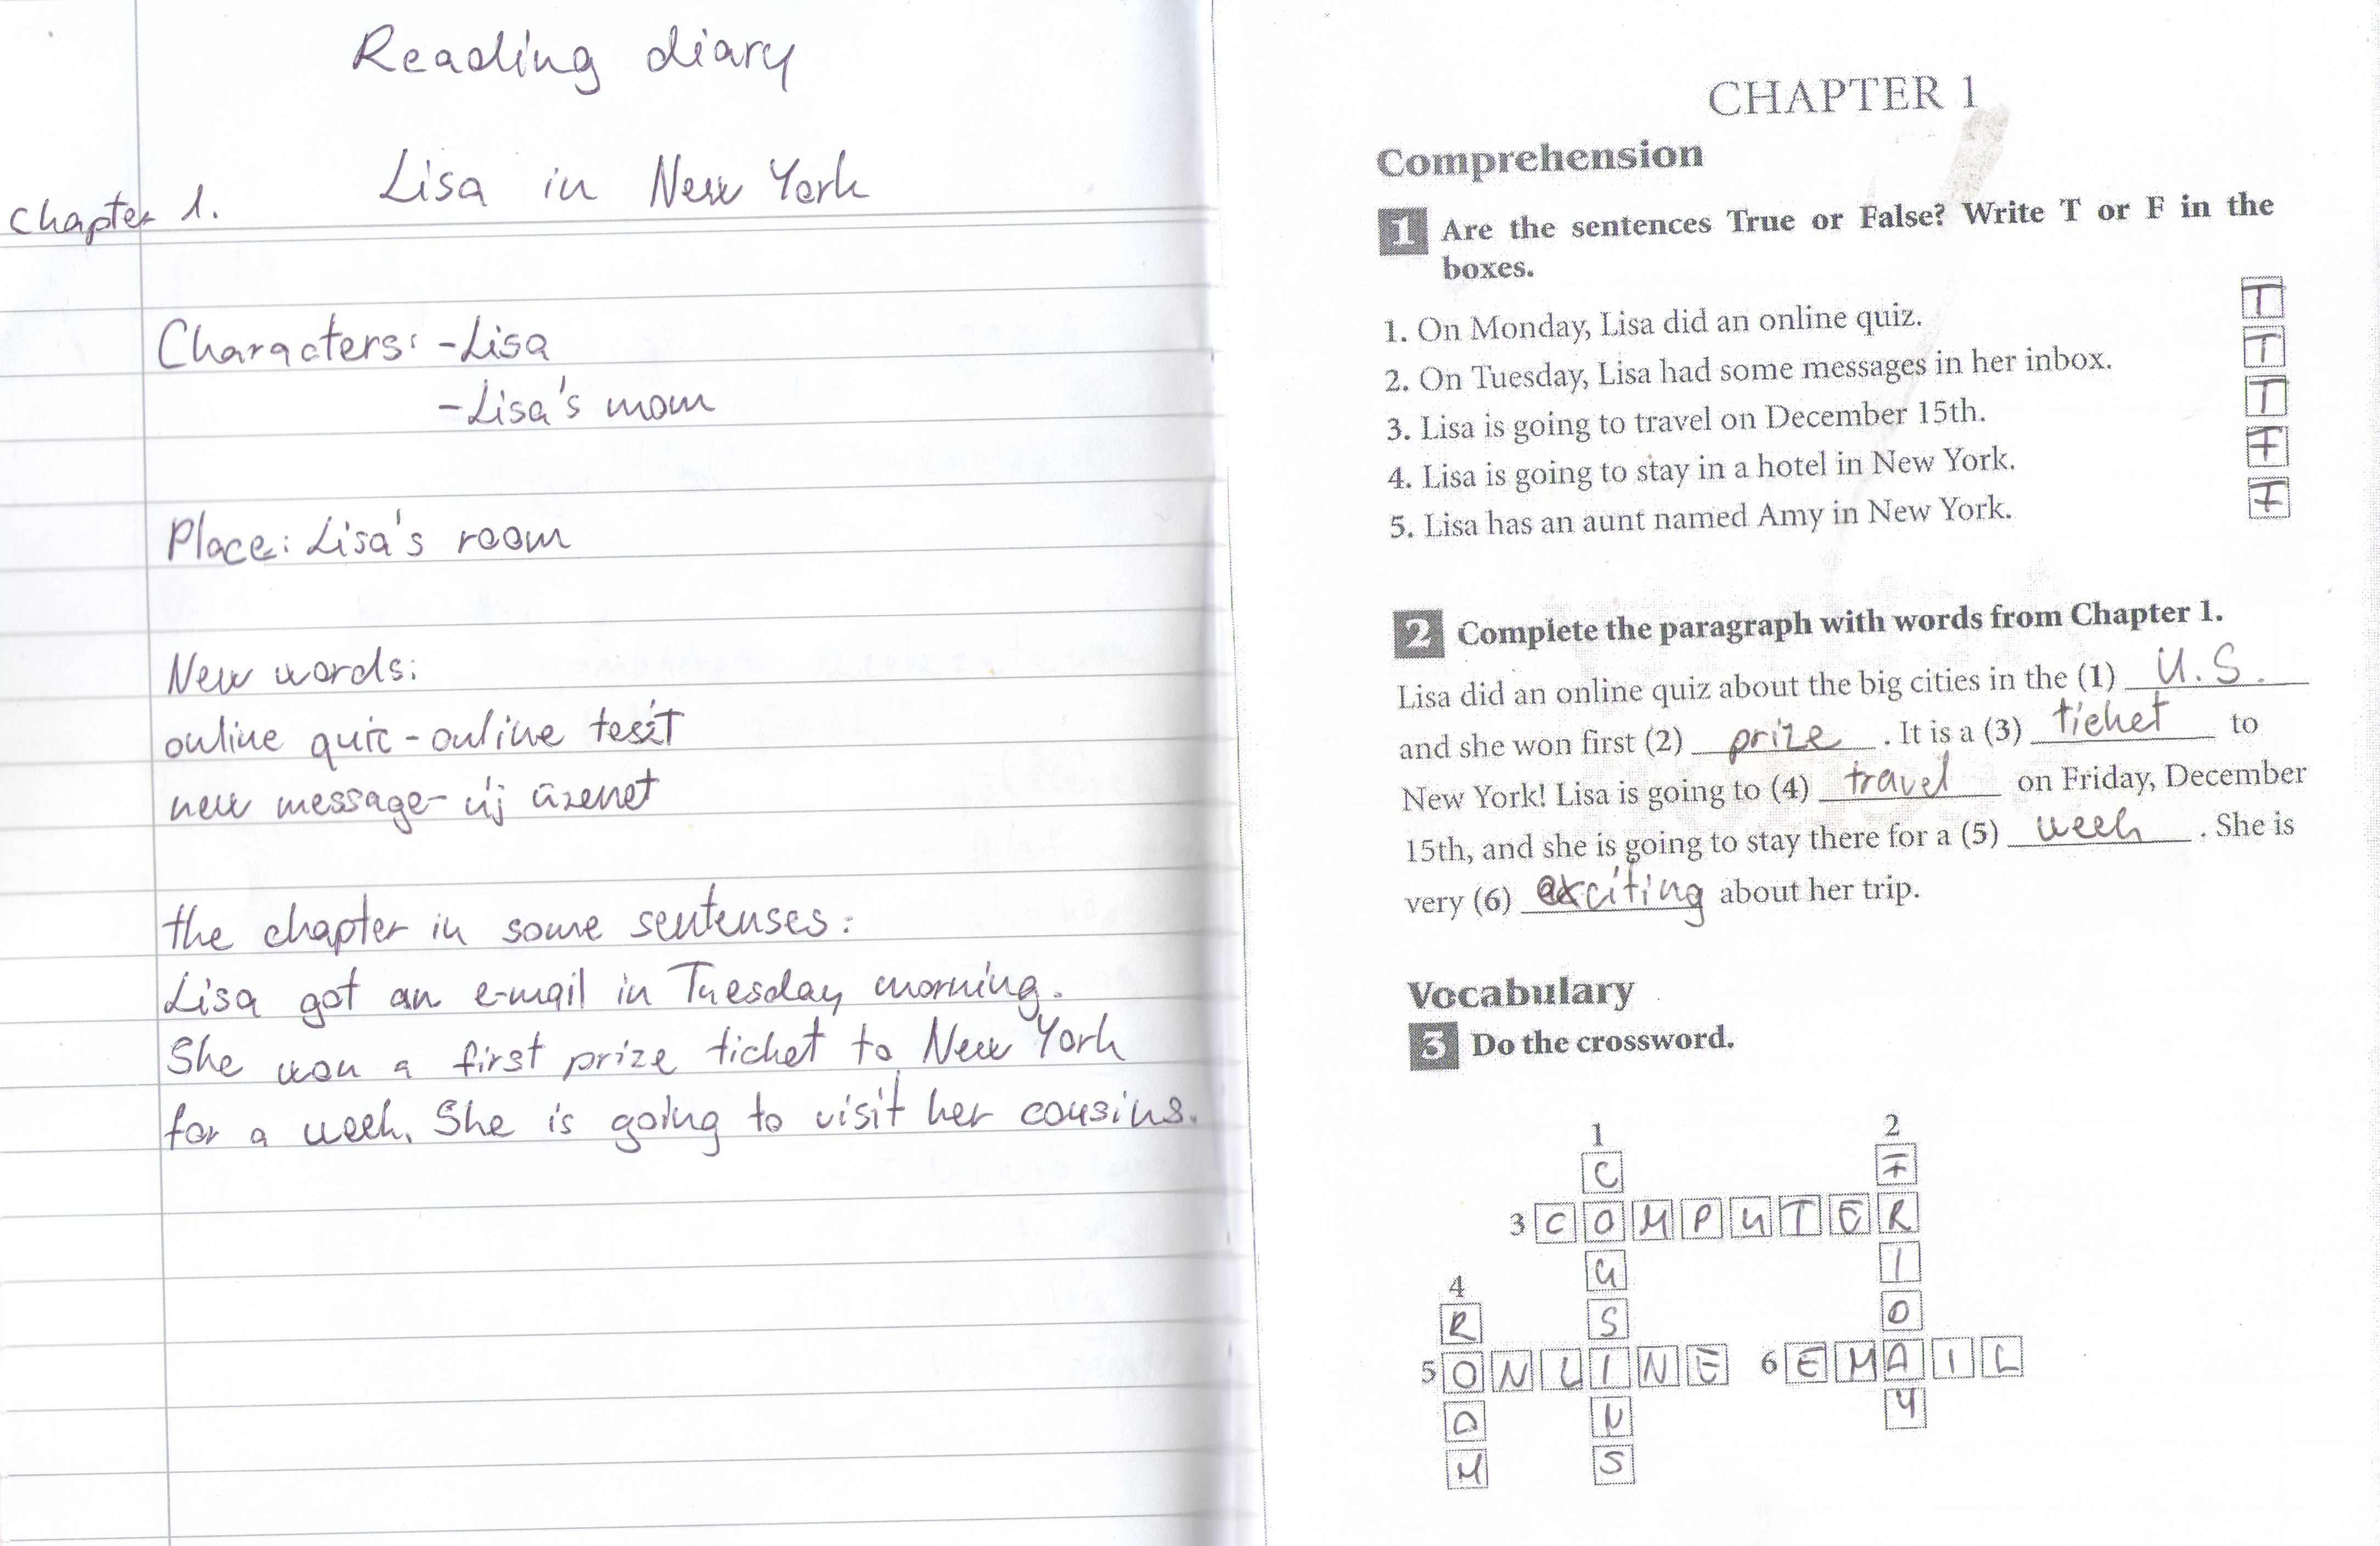 Reading diary
Lisa in New York
Chapter 1.
Characters: -Lisa
-Lisa's mom
Place: Lisa's room
New words:
online quic - online teszt
new message - új üzenet
the chapter in some sentenses:
Lisa got an e-mail in Tuesday morning.
She won a first prize ticket to New York
for a week. She is going to visit her cousins.
CHAPTER 1
Comprehension
1 Are the sentences True or False? Write T or F in the
boxes.
1. On Monday, Lisa did an online quiz. T
2. On Tuesday, Lisa had some messages in her inbox. T
3. Lisa is going to travel on December 15th. T
4. Lisa is going to stay in a hotel in New York. F
5. Lisa has an aunt named Amy in New York. F
2 Complete the paragraph with words from Chapter 1.
Lisa did an online quiz about the big cities in the (1) U.S.
and she won first (2) prize. It is a (3) ticket to
New York! Lisa is going to (4) travel on Friday, December
15th, and she is going to stay there for a (5) week. She is
very (6) exciting about her trip.
Vocabulary
3 Do the crossword.
1 2
C F
3 COMPUTER
U I
4
R S O
5 ONLINE 6 EMAIL
O N Y
M S